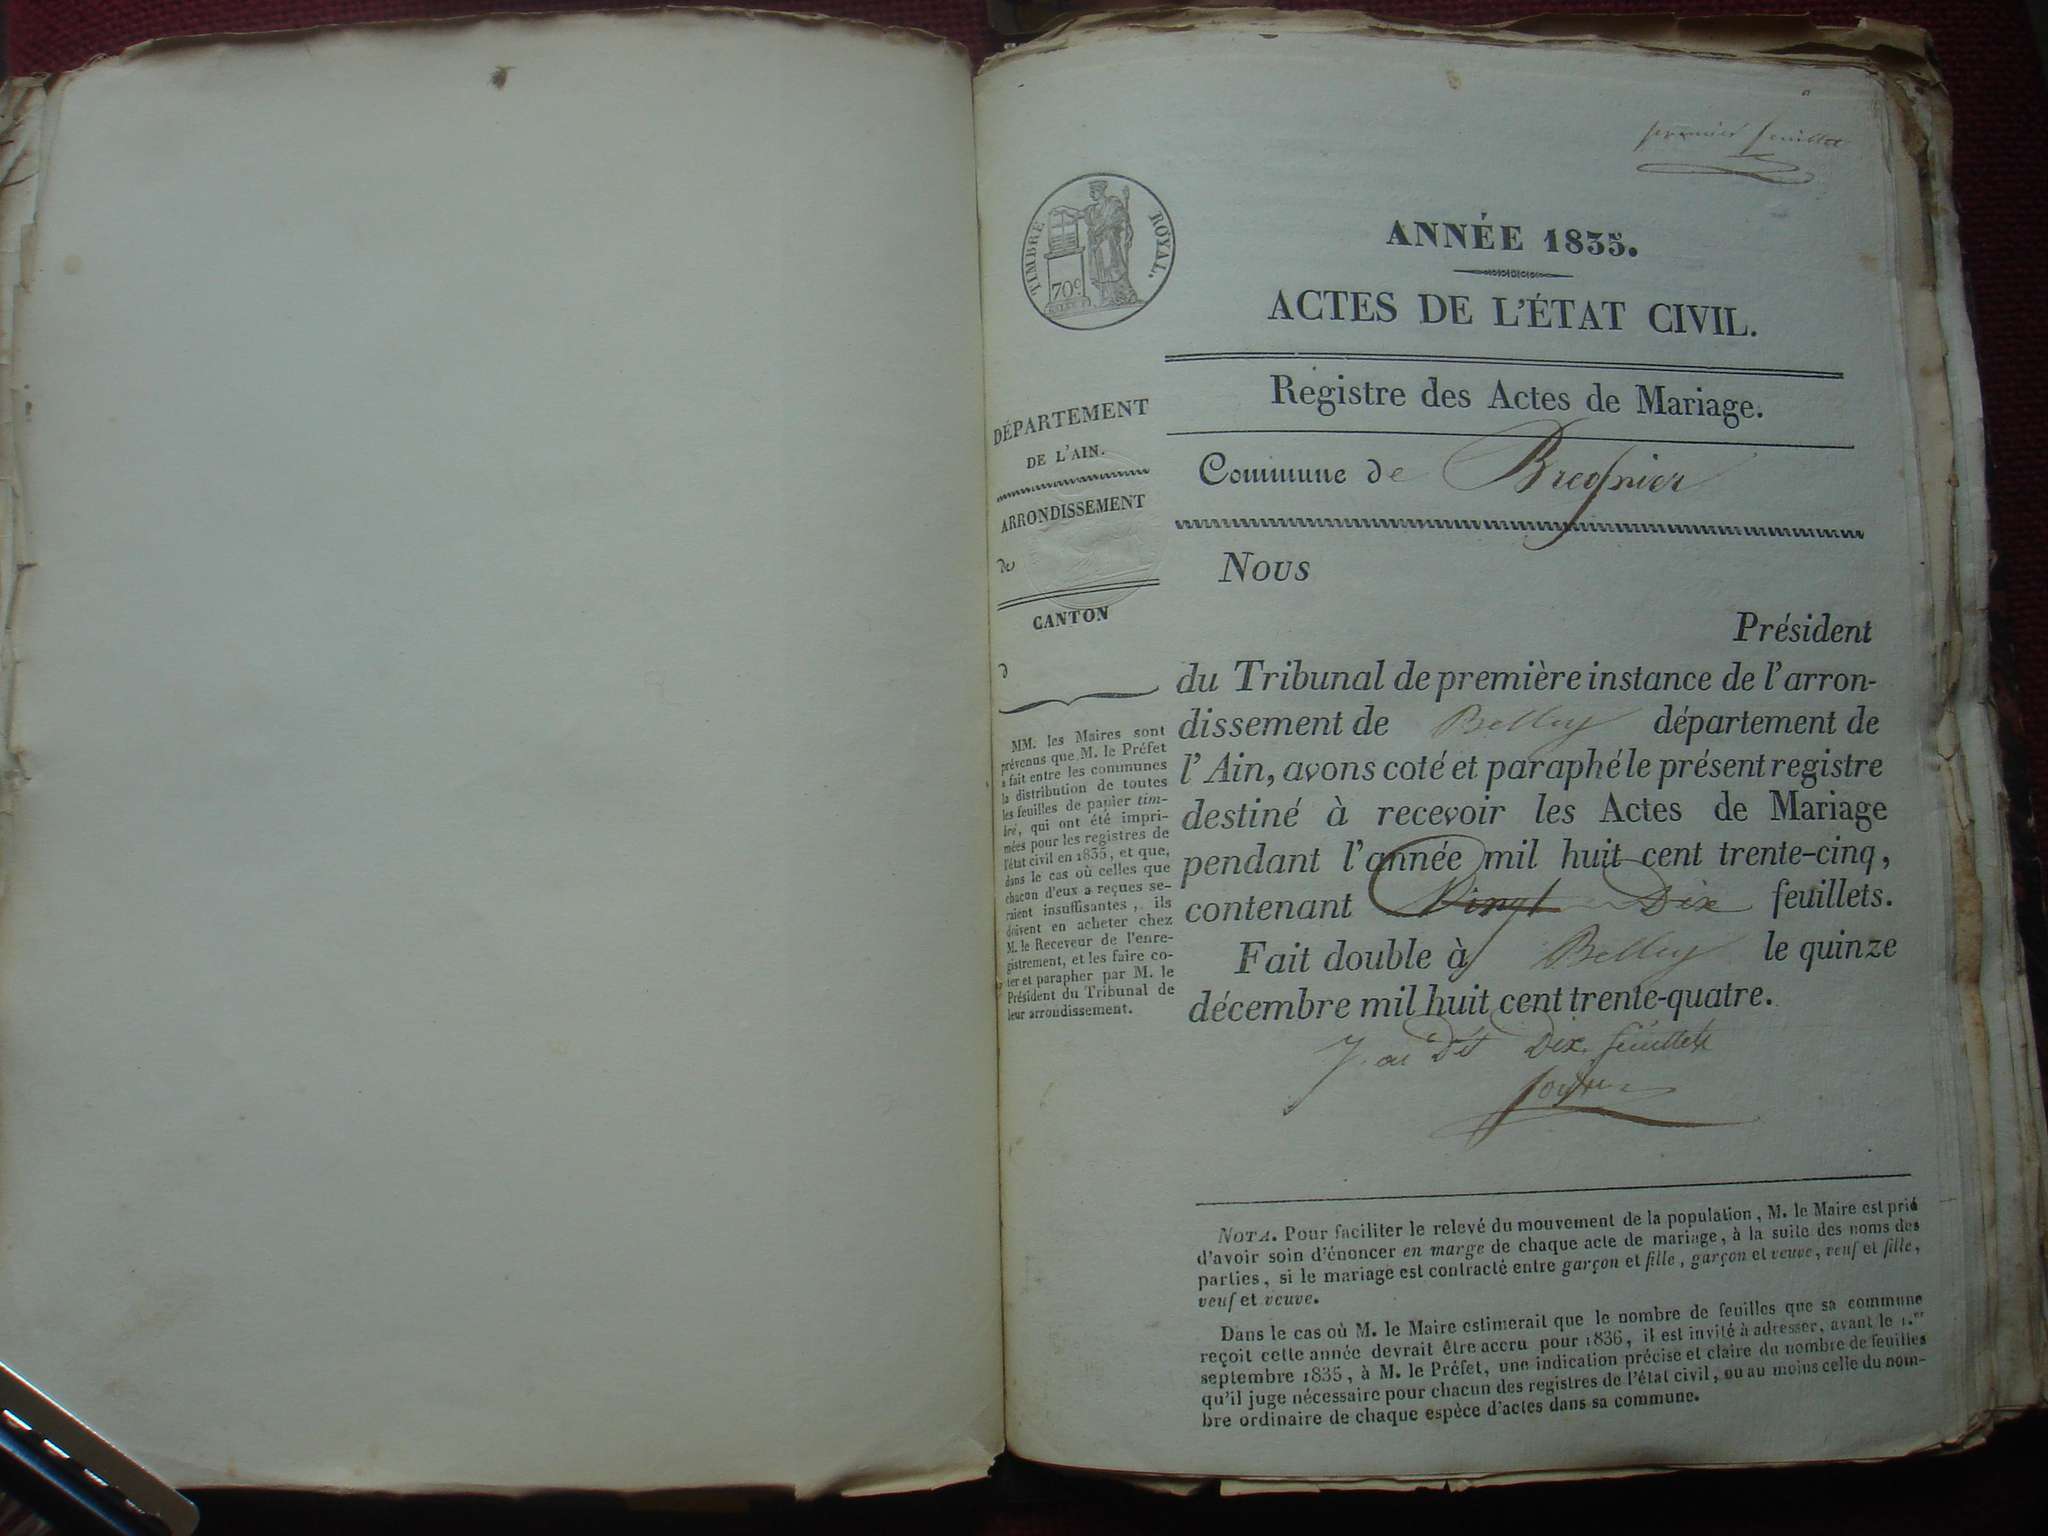 premier feuillet
TIMBRE ROYAL.
70c
ANNÉE 1835.
ACTES DE L'ÉTAT CIVIL.
Registre des Actes de Mariage.
Commune de Bregnier
DÉPARTEMENT
DE L'AIN.
ARRONDISSEMENT
de
CANTON
d
MM. les Maires sont
prévenus que M. le Préfet
a fait entre les communes
la distribution de toutes
les feuilles de papier tim-
bré, qui ont été impri-
mées pour les registres de
l'état civil en 1835, et que,
dans le cas où celles que
chacun d'eux a reçues se-
raient insuffisantes, ils
doivent en acheter chez
M. le Receveur de l'enre-
gistrement, et les faire co-
ter et parapher par M. le
Président du Tribunal de
leur arrondissement.
Nous
Président
du Tribunal de première instance de l'arron-
dissement de Belley département de
l'Ain, avons coté et paraphé le présent registre
destiné à recevoir les Actes de Mariage
pendant l'année mil huit cent trente-cinq,
contenant Vingt Dix feuillets.
Fait double à Belley le quinze
décembre mil huit cent trente-quatre.
J. ai Dit Dix feuillets
NOTA. Pour faciliter le relevé du mouvement de la population, M. le Maire est prié
d'avoir soin d'énoncer en marge de chaque acte de mariage, à la suite des noms des
parties, si le mariage est contracté entre garçon et fille, garçon et veuve, veuf et fille,
veuf et veuve.
Dans le cas où M. le Maire estimerait que le nombre de feuilles que sa commune
reçoit cette année devrait être accru pour 1836, il est invité à adresser, avant le 1.er
septembre 1835, à M. le Préfet, une indication précise et claire du nombre de feuilles
qu'il juge nécessaire pour chacun des registres de l'état civil, ou au moins celle du nom-
bre ordinaire de chaque espèce d'actes dans sa commune.